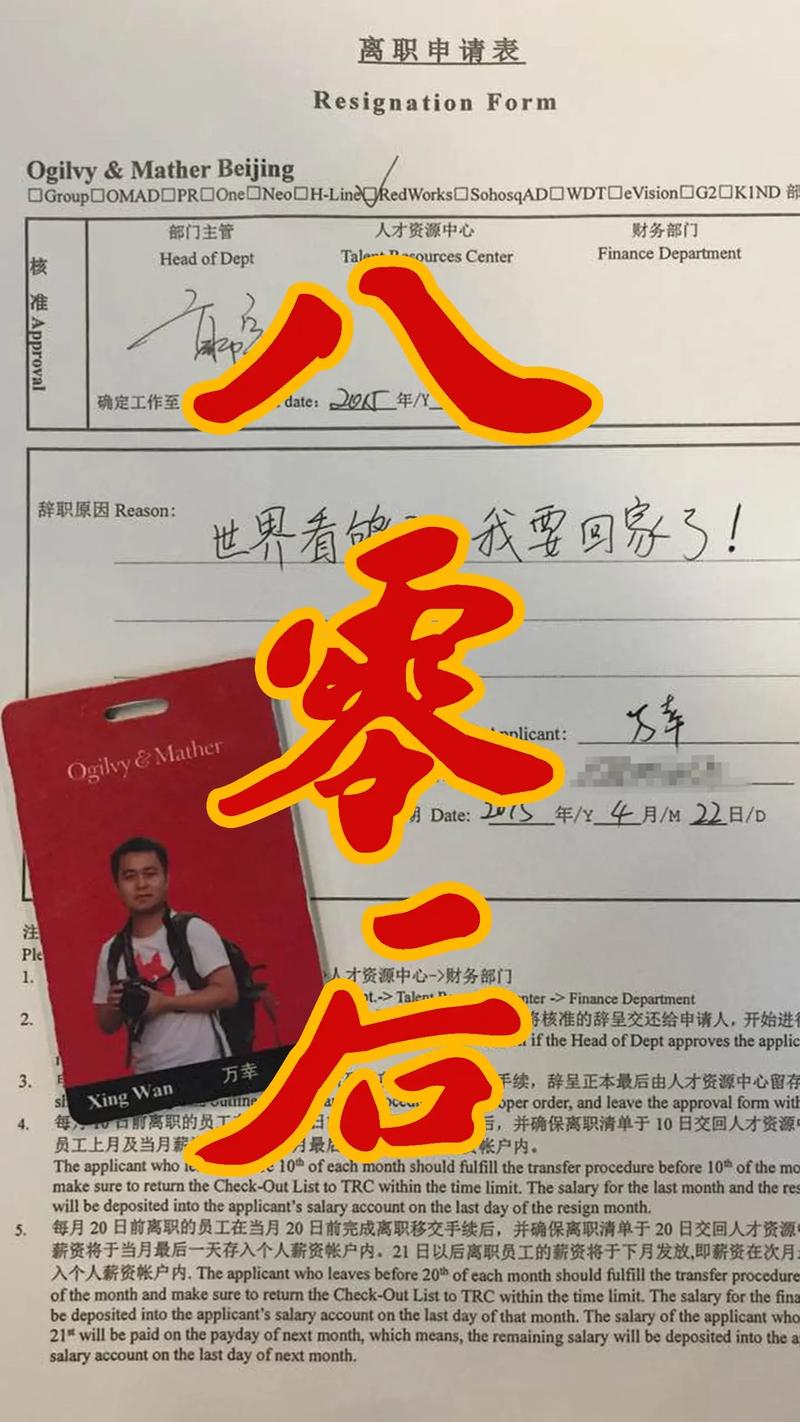 离职申请表
Resignation Form
Ogilvy & Mather Beijing
□Group□OMAD□PR□One□Neo□H-Line□RedWorks□SohosqAD□WDT□eVision□G2□K1ND 部
核准 Approval
部门主管 人才资源中心 财务部门
Head of Dept Talent Resources Center Finance Department
八
确定工作至 date: 2015 年/Y
辞职原因 Reason:
世界看够 我要回家了!
零
Applicant: 万幸
Ogilvy & Mather
期 Date: 2015 年/Y 4 月/M 22 日/D
后
注
Ple
1. 人才资源中心->财务部门
pt.-> Talent Re enter -> Finance Department
2. 将核准的辞呈交还给申请人，开始进行
if the Head of Dept approves the applic
Xing Wan 万幸
3. 手续，辞呈正本最后由人才资源中心留存
oper order, and leave the approval form with
4. 每月 10 日前离职的员工 日前 后，并确保离职清单于 10 日交回人才资源中
员工上月及当月薪 月最后 帐户内。
The applicant who le re 10th of each month should fulfill the transfer procedure before 10th of the mo
make sure to return the Check-Out List to TRC within the time limit. The salary for the last month and the res
will be deposited into the applicant's salary account on the last day of the resign month.
5. 每月 20 日前离职的员工在当月 20 日前完成离职移交手续后，并确保离职清单于 20 日交回人才资源中
薪资将于当月最后一天存入个人薪资帐户内。21 日以后离职员工的薪资将于下月发放,即薪资在次月
入个人薪资帐户内. The applicant who leaves before 20th of each month should fulfill the transfer procedure
of the month and make sure to return the Check-Out List to TRC within the time limit. The salary for the fina
be deposited into the applicant's salary account on the last day of that month. The salary of the applicant who
21st will be paid on the payday of next month, which means, the remaining salary will be deposited into the a
salary account on the last day of next month.